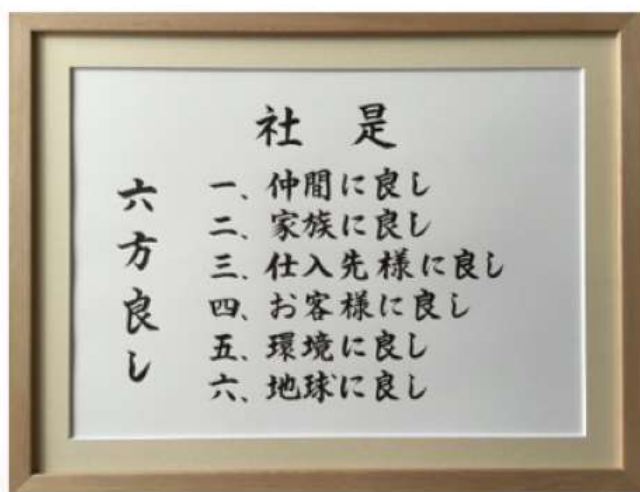 社是
六方良し
一、仲間に良し
二、家族に良し
三、仕入先様に良し
四、お客様に良し
五、環境に良し
六、地球に良し